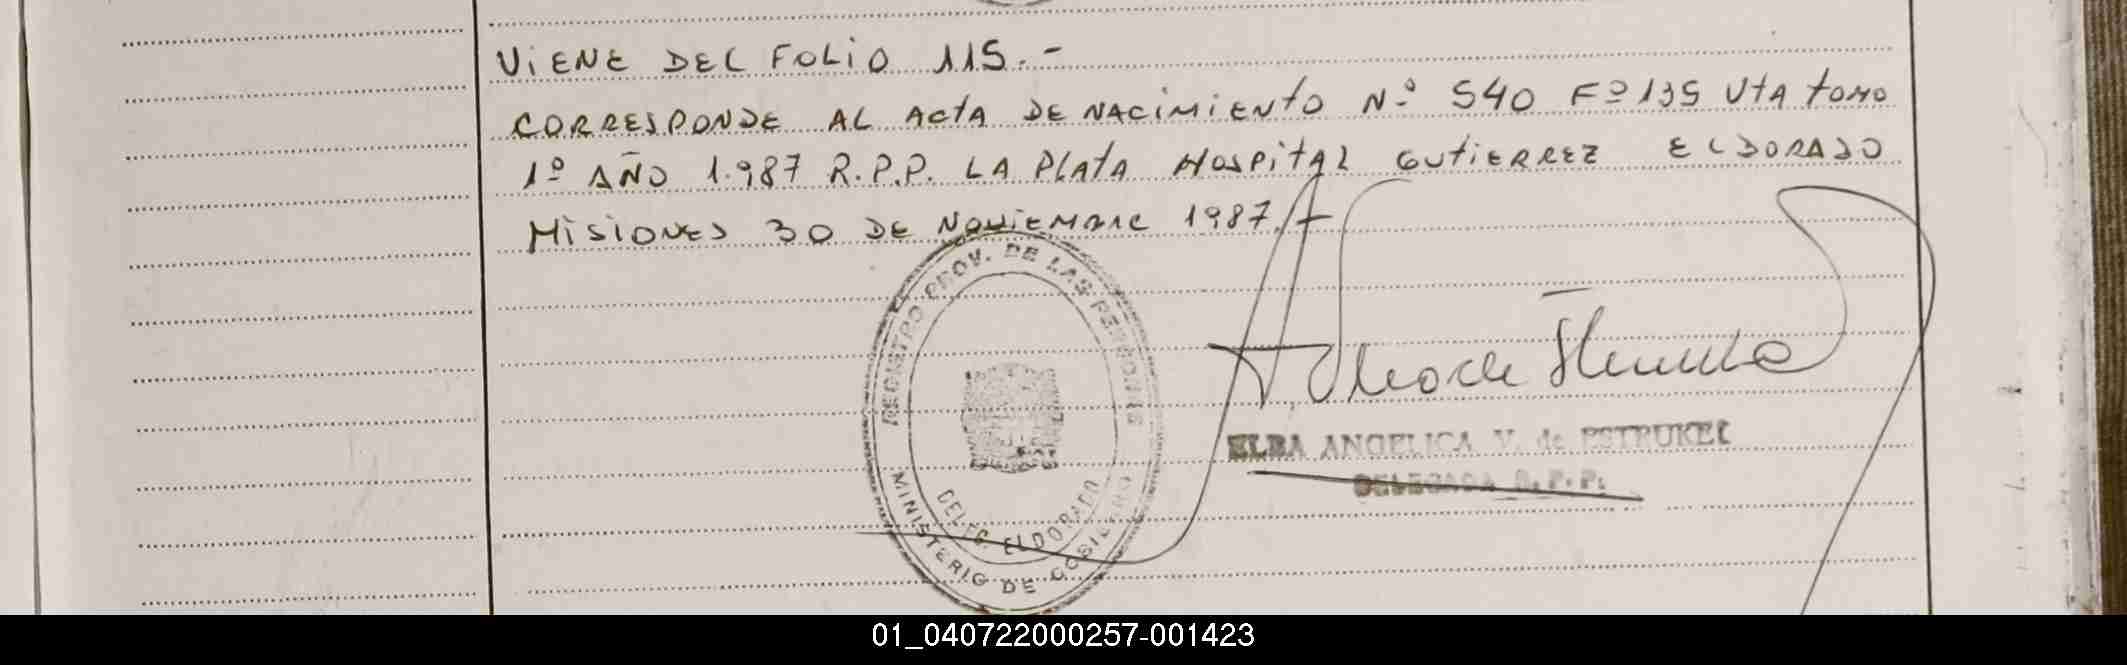 VIENE DEL FOLIO 115.-
CORRESPONDE AL ACTA DE NACIMIENTO N.º 540 Fº 135 VTA TOMO
1º AÑO 1.987 R.P.P. LA PLATA HOSPITAL GUTIERREZ ELDORADO
MISIONES 30 DE NOVIEMBRE 1987./-
REGISTRO PROV. DE LAS PERSONAS
DELEG. ELDORADO
MINISTERIO DE GOBIERNO
ELBA ANGELICA V. de ESTRUKEL
DELEGADA R.P.P.
01_040722000257-001423